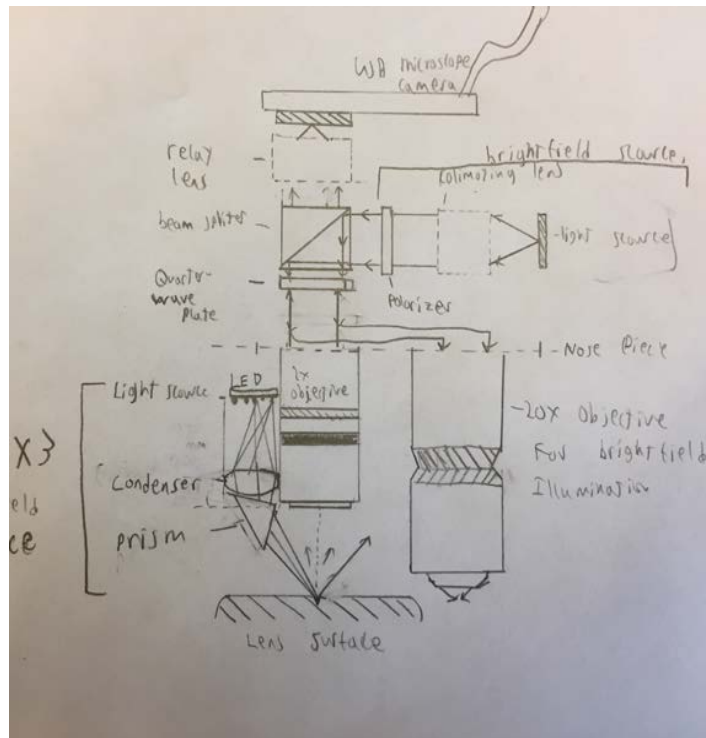 microscope
camera
relay
lens
brightfield scource,
Colimozing lens
beam spliter
-light
scource
Quarter-
wave
plate
Polarizer
-Nose Piece
Light scource
LED
2x
objective
-20x Objective
For brightfield
Illumination
X3
eld
ce
Condenser
prism
Lens Surface